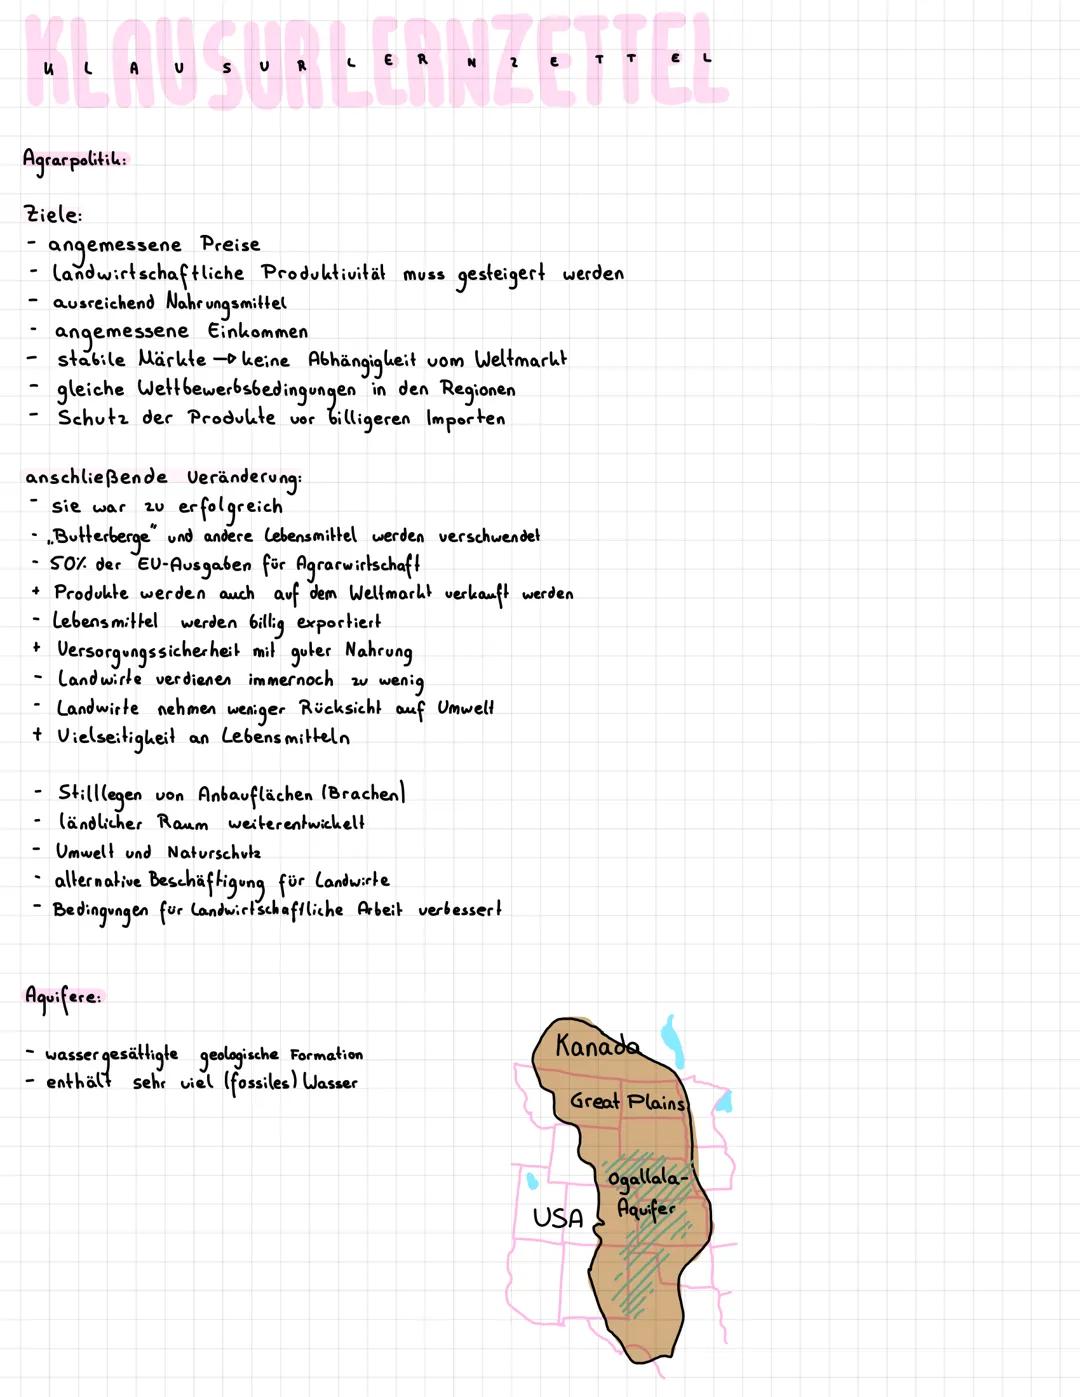 KLAUSURLERNZETTEL
K L A U S U R L E R N Z E T T E L
Agrarpolitik:
Ziele:
- angemessene Preise
- landwirtschaftliche Produktivität muss gesteigert werden
- ausreichend Nahrungsmittel
- angemessene Einkommen
- stabile Märkte → keine Abhängigkeit vom Weltmarkt
- gleiche Wettbewerbsbedingungen in den Regionen
- Schutz der Produkte vor billigeren Importen
anschließende Veränderung:
- sie war zu erfolgreich
- „Butterberge" und andere Lebensmittel werden verschwendet
- 50% der EU-Ausgaben für Agrarwirtschaft
+ Produkte werden auch auf dem Weltmarkt verkauft werden
- Lebensmittel werden billig exportiert
+ Versorgungssicherheit mit guter Nahrung
- Landwirte verdienen immernoch zu wenig
- Landwirte nehmen weniger Rücksicht auf Umwelt
+ Vielseitigkeit an Lebensmitteln
- Stilllegen von Anbauflächen (Brachen)
- ländlicher Raum weiterentwickelt
- Umwelt und Naturschutz
- alternative Beschäftigung für Landwirte
- Bedingungen für Landwirtschaftliche Arbeit verbessert
Aquifere:
- wassergesättigte geologische Formation
- enthält sehr viel (fossiles) Wasser
Kanada
Great Plains
Ogallala-
Aquifer
USA